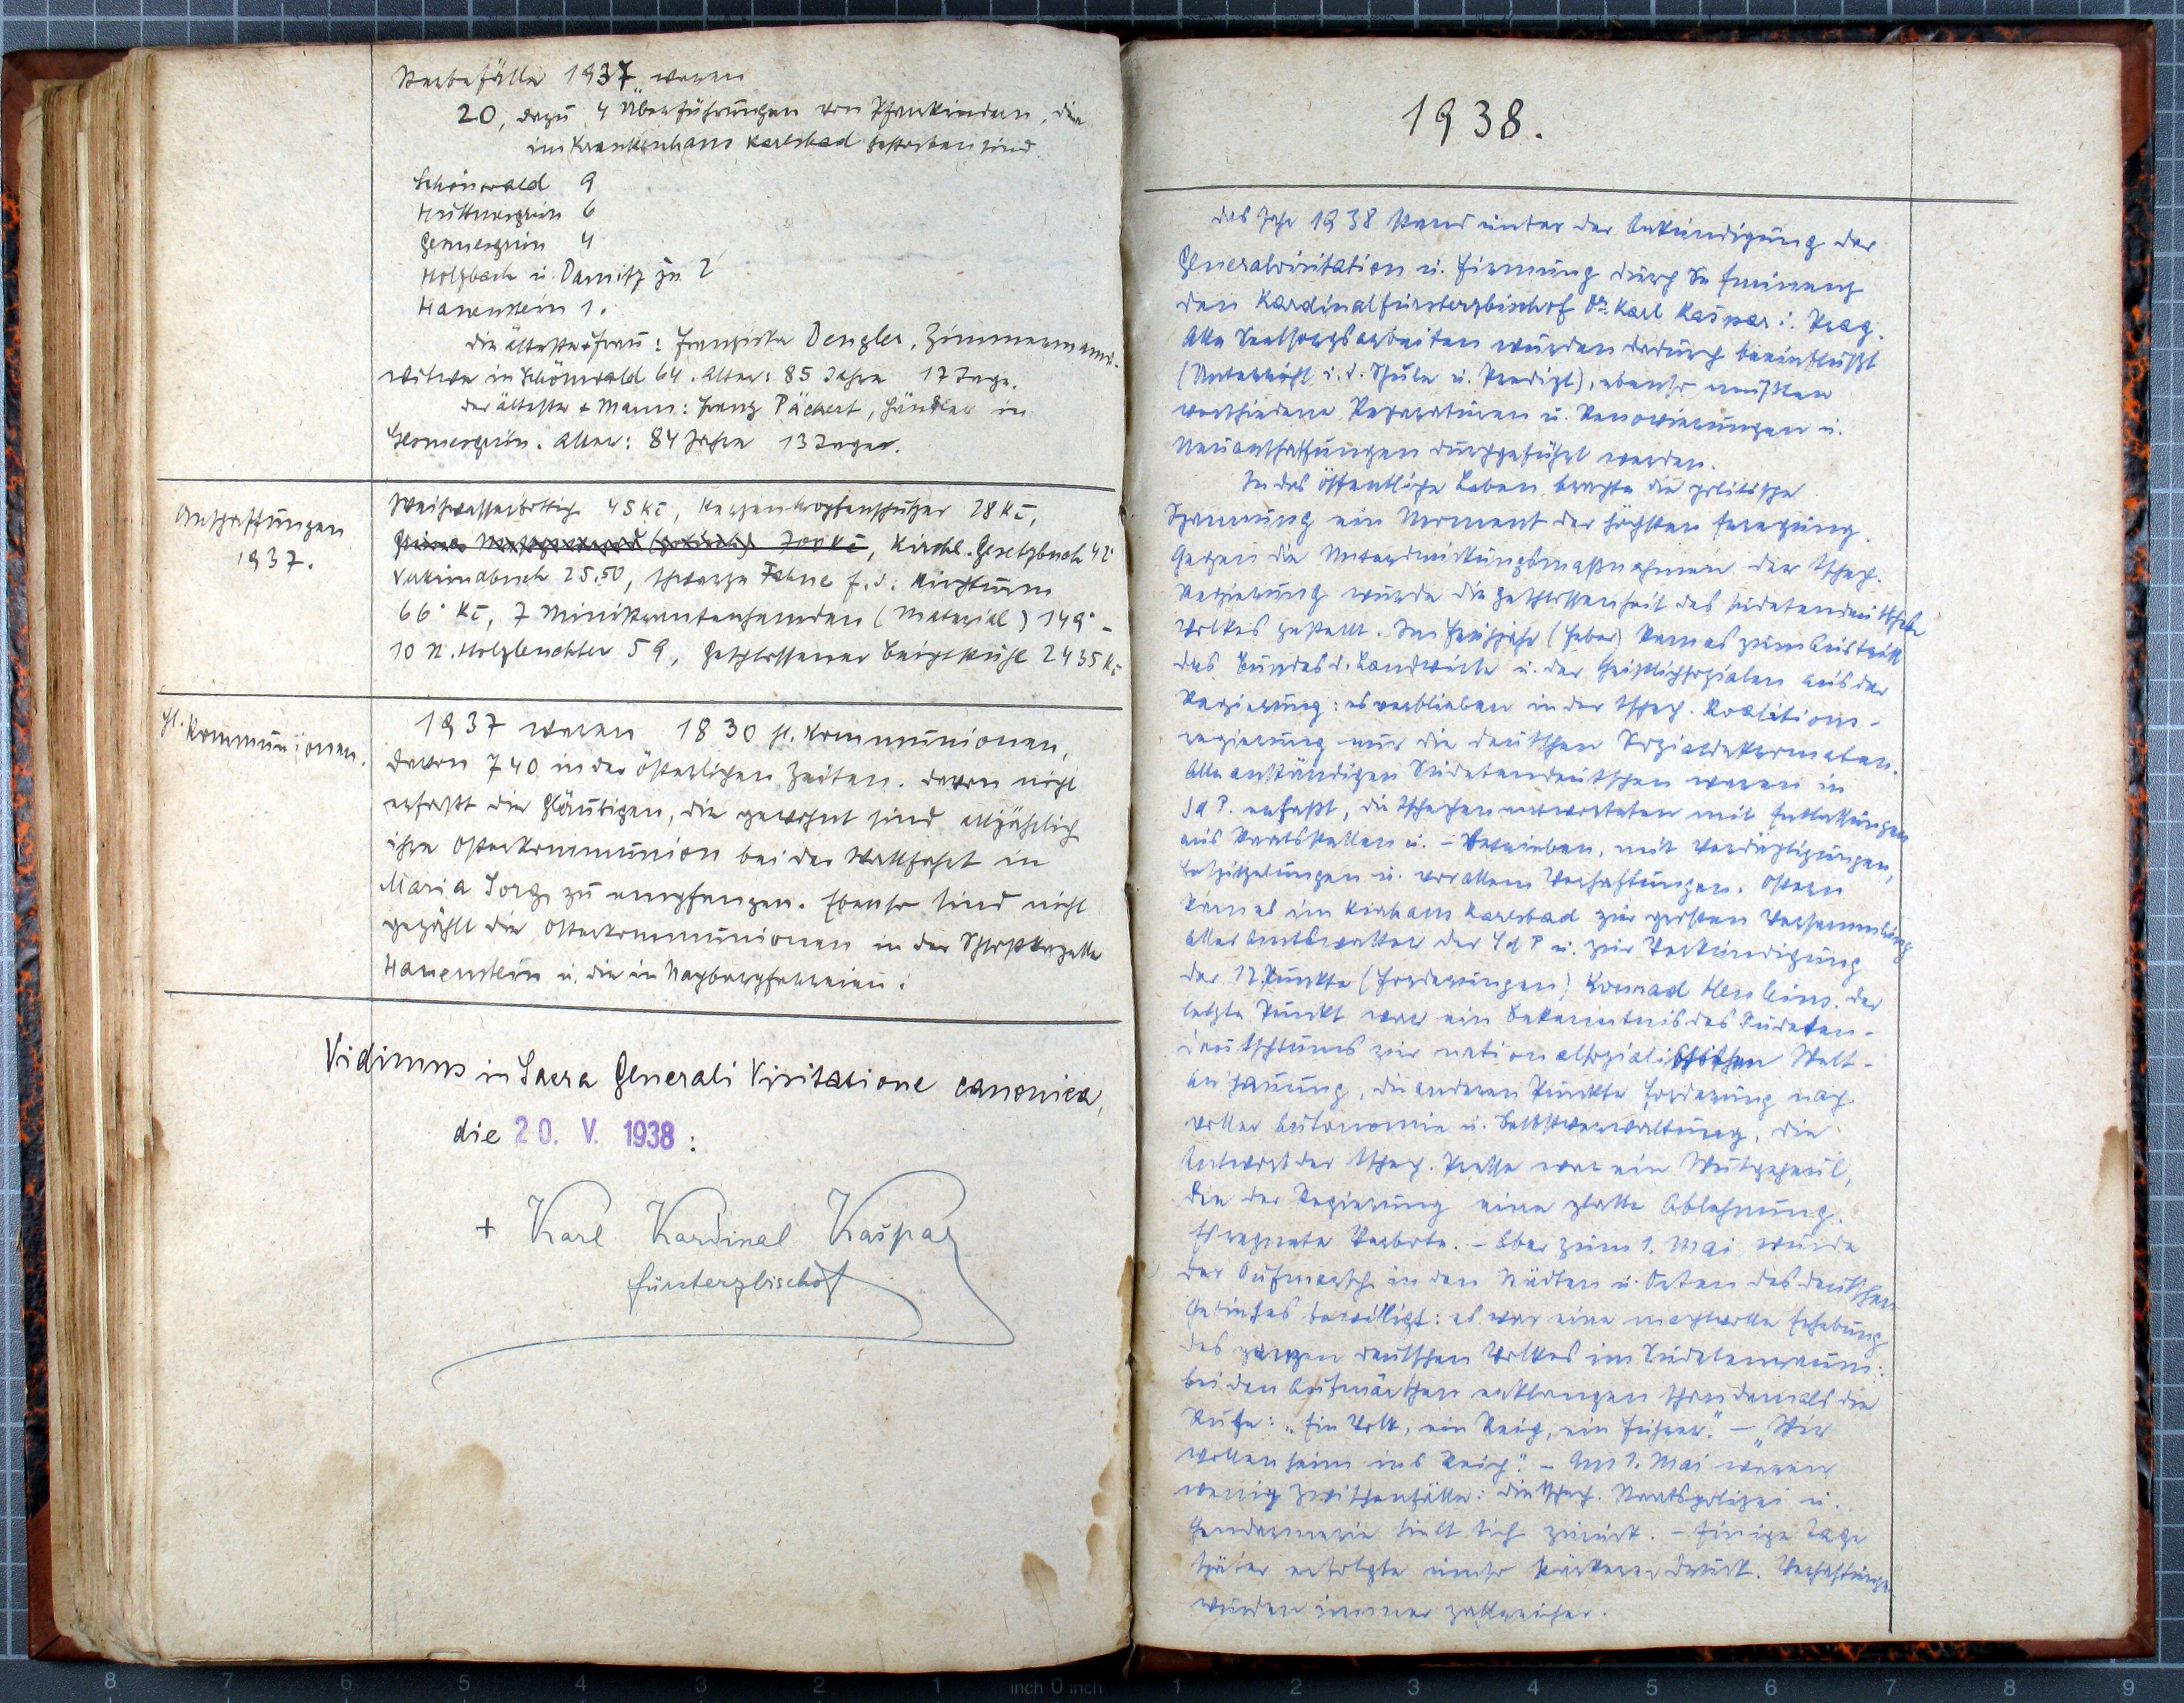 Sterbefälle 1937 waren
20, dazu 4 Überführungen von Pfarrkindern, die
im Krankenhaus Karlsbad gestorben sind
Schönwald 9
Hüttmesgrün 6
Gesmesgrün 4
Holzbach u. Damitz je 2
Hauenstein 1.
die älteste Frau: Franziska Dengler, Zimmermanns-
witwe in Schönwald 64. Alter: 85 Jahre 17 Tage.
der älteste + Mann: Franz Päckert, Händler in
Gesmesgrün. Alter: 84 Jahre 13 Tage.
Anschaffungen
1937.
Weihwasserbottich 45 Kč, Kerzentropfenschützer 28 Kč,
Grünes 700 Kč, Kirchl. Gesetzbuch 42·
Verkündbuch 25.50, schwarze Fahne f. d. Kirchturm
66· Kč, 7 Ministrantenhemden (Material) 149·-
10 St. Holzleuchter 59, geschlossener Beichtstuhl 2435 Kč
hl. Kommunionen.
1937 waren 1830 hl. Kommunionen,
davon 740 in der österlichen Zeiten. davon nicht
erfaßt die Gläubigen, die gewohnt sind alljährlich
ihre Osterkommunion bei der Wallfahrt in
Maria Sorg zu empfangen. Ebenso sind nicht
gezählt die Osterkommunionen in der Schloßkapelle
Hauenstein u. die in Nachbarpfarreien.
Vidimus in Sacra Generali Visitatione canonica,
die 20. V. 1938:
+ Karl Kardinal Kašpar
Fürsterzbischof
1938.
das Jahr 1938 stand unter der Ankündigung der
Generalvisitation u. Firmung durch Se Eminenz
den Kardinalfürsterzbischof Dr. Karl Kašpar i. Prag.
Alle Seelsorgsarbeiten wurden dadurch beeinflußt
(Unterricht i. d. Schule u. Predigt), ebenso mußten
verschiedene Reparaturen u. Renovierungen u.
Neuanschaffungen durchgeführt werden.
In das öffentliche Leben brachte die politische
Spannung ein Moment der höchsten Erregung.
Gegen die Unterdrückungsmaßnahmen der tschech.
Regierung wurde die Geschlossenheit des sudetendeutschen
Volkes gestellt. Im Frühjahr (Feber) kam es zum Austritt
des Bundes d. Landwirte u. der Christlichsozialen aus der
Regierung: es verblieben in der tschech. Koalitions-
regierung nur die deutschen Sozialdekormaten.
Alle anständigen Sudetendeutschen waren in
SdP. erfaßt, die Tschechen antworteten mit Entlassungen
aus Staatsstellen u. -Betrieben, mit Verdächtigungen,
Bespitzelungen u. vor allem Verhaftungen. Ostern
kam es im Kurhaus Karlsbad zur großen Versammlung
aller Amtswalter der SdP u. zur Verkündigung
der 12. Punkte (Forderungen) Konrad Henleins. der
letzte Punkt war ein Bekenntnis des Sudeten-
deutschtums zur nationalsozialistischen Welt-
anschauung, die anderen Punkte Forderung nach
voller Autonomie u. Selbstverwaltung, die
Antwort der tschech. Presse war ein Wutgeheul,
die der Regierung eine glatte Ablehnung.
Es regnete Verbote. - Aber zum 1. Mai wurde
der Aufmarsch in den Städten u. Orten des deutschen
Gebietes bewilligt: es war eine machtvolle Erhebung
des ganzen deutschen Volkes im Sudetenraum:
bei den Aufmärschen erklangen schon damals die
Rufe: „Ein Volk, ein Reich, ein Führer." - „Wir
wollen heim ins Reich." - Am 1. Mai waren
wenig Zwischenfälle: die tschech. Staatspolizei u.
Gendarmerie hielt sich zurück. - Einige Tage
später erfolgte umso stärkerer Druck. Verhaftungen
wurden immer zahlreicher.